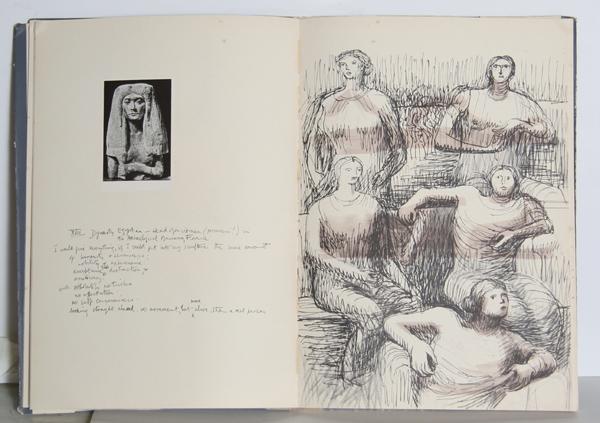 XIIth Dynasty Egyptian — Head of a woman (                ) in
the Archaeological Museum Florence
I would give everything, if I could get into my sculpture the same amount
of humanity & seriousness;
nobility & experience
acceptance of           distraction, &
with absolutely no tricks
no affectation
no self consciousness
looking straight ahead, no movement, but more alive than a real person